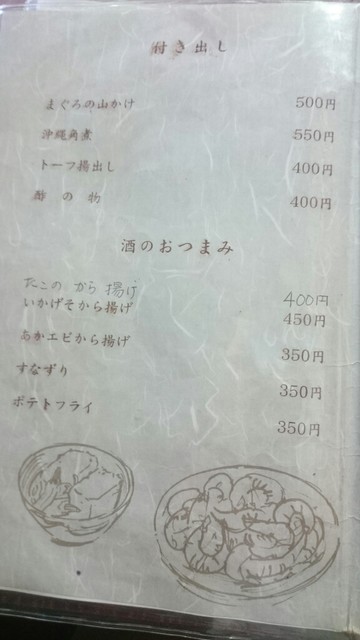 付き出し
まぐろの山かけ 500円
沖縄角煮 550円
トーフ揚出し 400円
酢の物 400円
酒のおつまみ
たこの から 揚げ 400円
いかげそから揚げ 450円
あかエビから揚げ 350円
すなずり 350円
ポテトフライ 350円